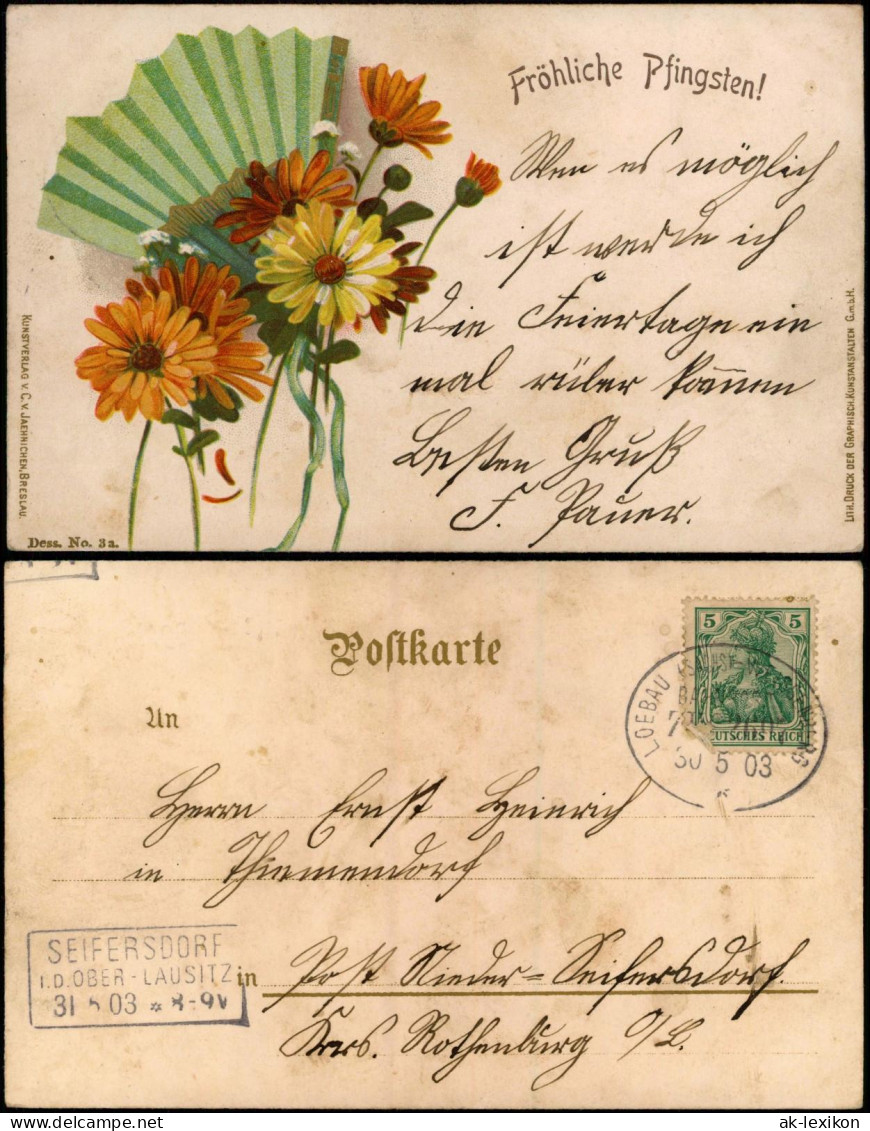 Fröhliche Pfingsten!
Wen es möglich
ist werde ich
die Feiertage ein
mal rüber kommen
Besten Gruß
F. Pauer.
KUNSTVERLAG v. C. v. JAEHNICHEN, BRESLAU.
LITH. DRUCK DER GRAPHISCH. KUNSTANSTALTEN G.m.b.H.
Dess. No. 3a.
Postkarte
5 5
DEUTSCHES REICH
LOEBAU
BAHN
30 5 03
An
Herrn Ernst Heinrich
in Thiemendorf
SEIFERSDORF
I.D. OBER-LAUSITZ
31 5 03 * 8-9V
in Post Nieder=Seifersdorf.
Krs. Rothenburg O/L.
ak-lexikon